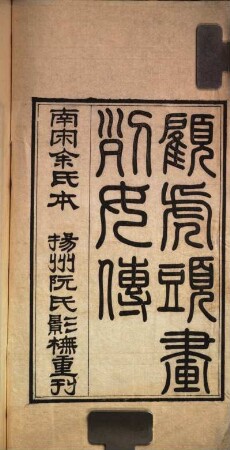 顧虎頭畫
列女傳
南宋余氏本　揚州阮氏影橅重刊